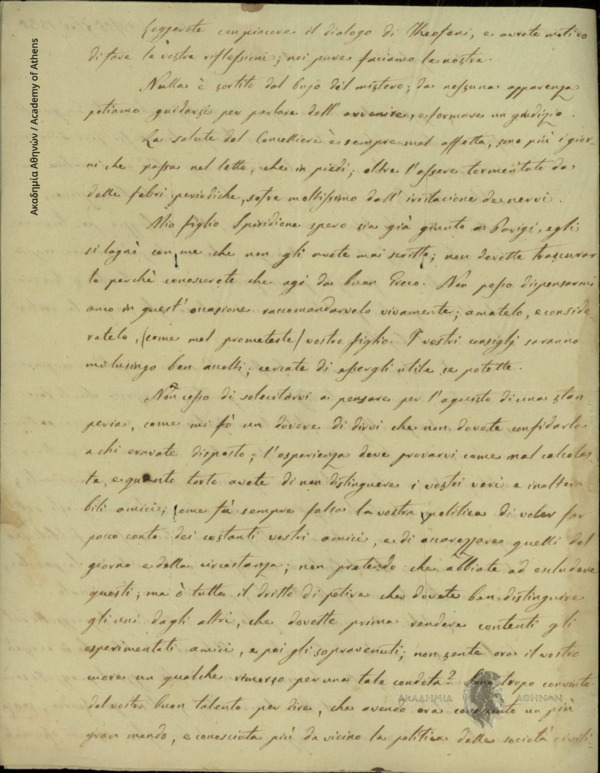 Leggerete con piacere il dialogo di Theofani, e avrete motivo
di fare le vostre riflessioni; noi pure faciamo le nostre.
Nulla è sortito dal bujo del mistero; da nessuna apparenza
potiamo guidarsi per parlare dell' avvenire, e formare un giudizio.
La salute del Consigliere è sempre mal affetta, sono più i gior-
ni che passa nel letto, che in piedi; oltre l'essere tormentato da
delle febri periodiche, sofre moltissimo dall' irritazione de nervi.
Mio figlio Spiridione spero sia già giunto a Parigi, egli
si lagnò con me che non gli avete mai scritto; non dovete trascurar-
lo perchè conoscerete che agì da buon Greco. Non posso dispensarmi
anco in quest' ocasione raccomandarvelo vivamente; amatelo, e conside
ratelo, (come mel prometeste) vostro figlio. I vostri consiglj saranno
mi lusingo ben accolti; cercate di essergli utile se potette.
Non cesso di solecitarvi a pensare per l'aquisto di una stam
peria, come mi fò un dovere di dirvi che non dovete confidarla
a chi eravate disposto; l'esperienza deve provarvi come mal calcolas
te, e quanto torto avete di non distinguere i vostri veri e inaltera
bili amici; come fù sempre falsa la vostra politica di voler far
pocco conto dei costanti vostri amici, e di accarezzare quelli del
giorno e della circostanza; non pretendo che abbiate ad escludere
questi; ma è tutta il dritto di petire che dovete ben distinguire
gli uni dagli altri, che dovette prima rendere contenti gli
esperimentati amici, e poi gli sopravenuti; non sente ora il vostro
cuore un qualche rimorso per una tale condota? Sono tropo convinto
del vostro buon talento per dire, che avendo ora conosciuto un più
gran mondo, e conosciuta più da vicino la politica delle società civili-
Ακαδημία Αθηνών / Academy of Athens
ΑΚΑΔΗΜΙΑ ΑΘΗΝΩΝ